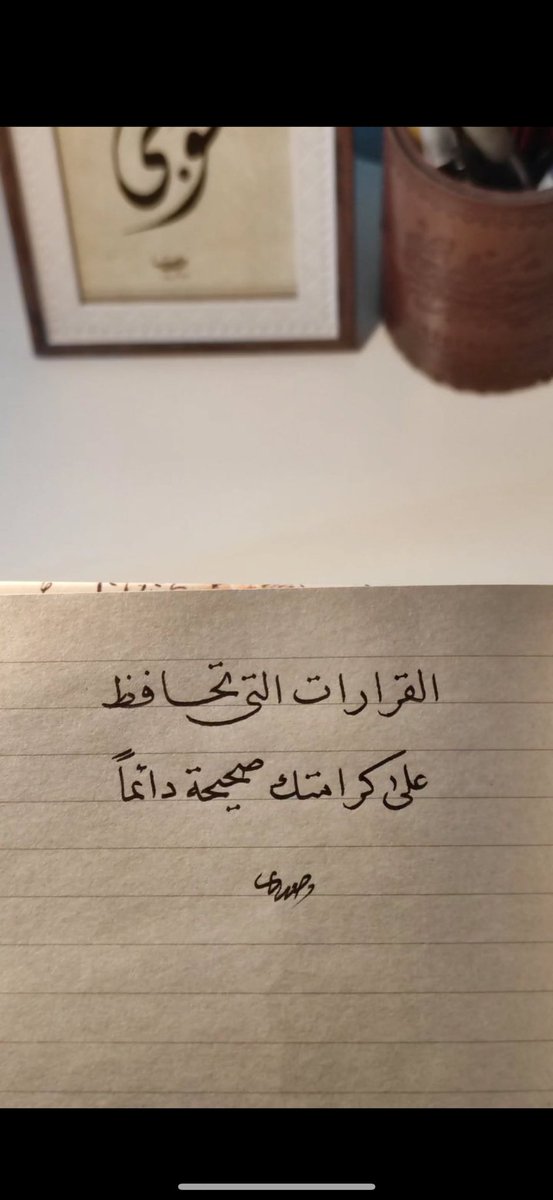 القرارات التي تحافظ
على كرامتك صحيحة دائماً